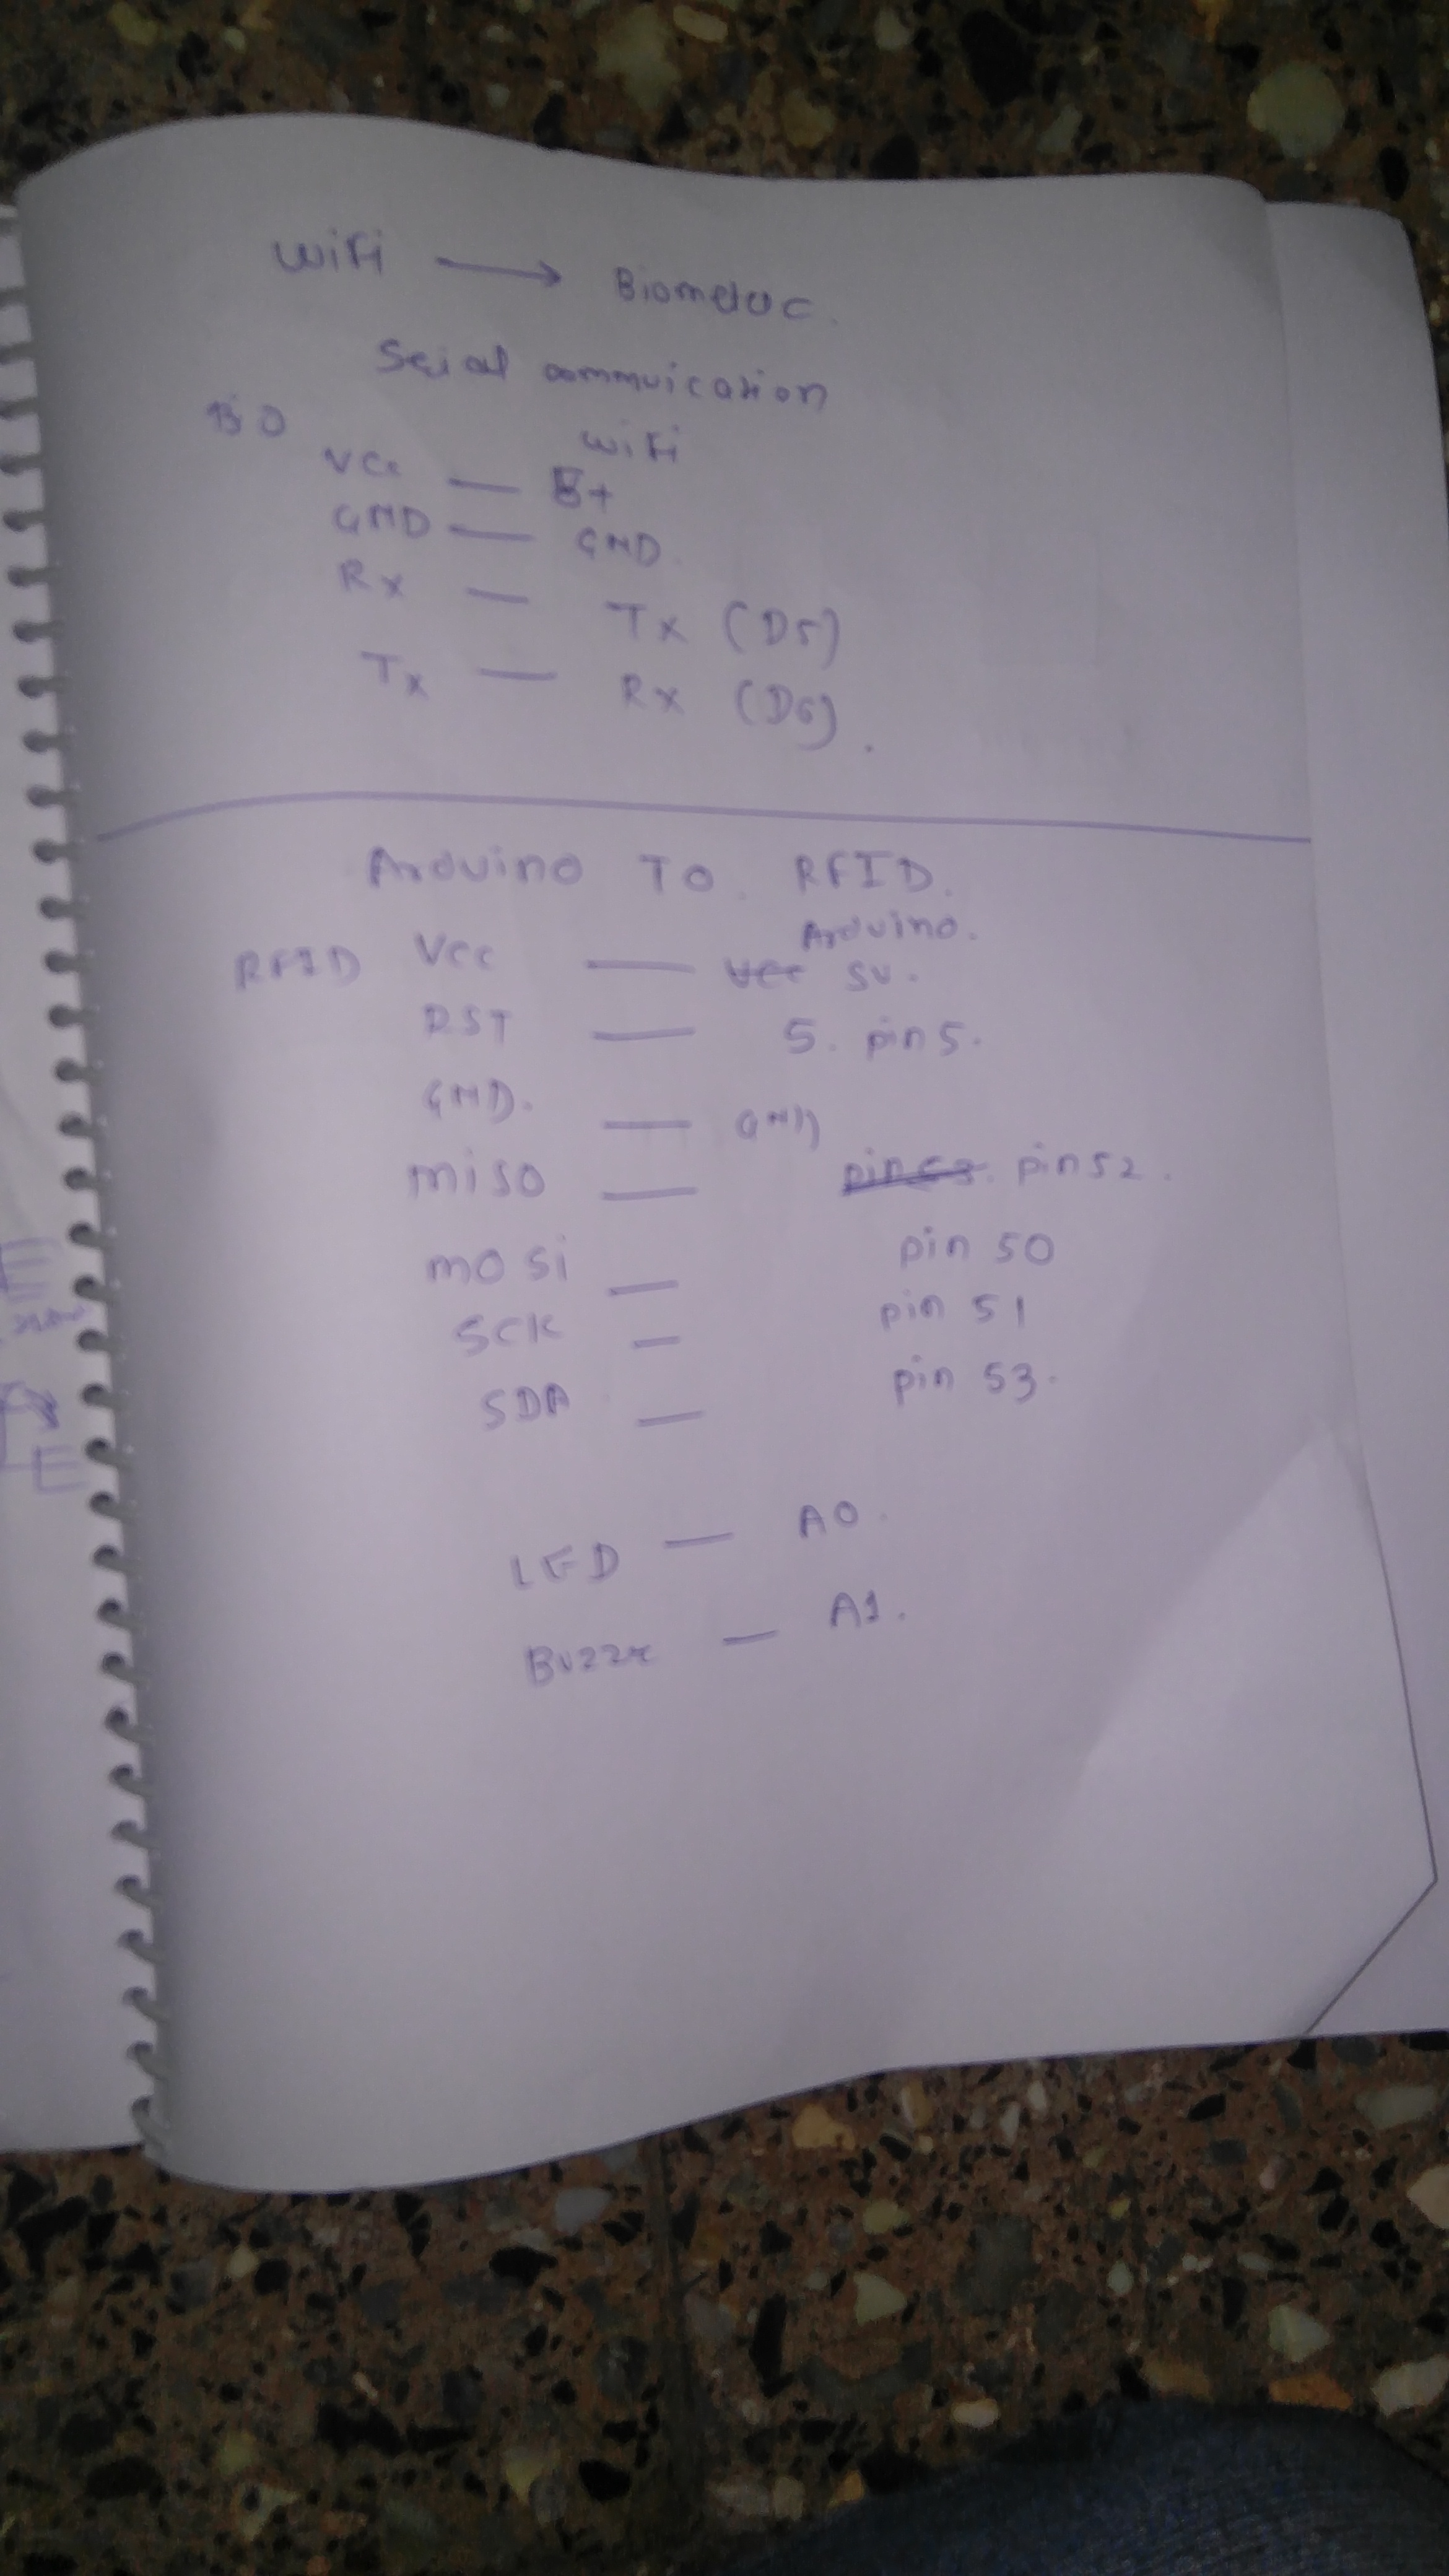 WiFi → Biometric.
Serial commuication
BIO WiFi
VCC — 5+
GND — GND.
Rx — Tx (D5)
Tx — Rx (D6).
Arduino TO RFID.
RFID Arduino.
Vcc — Vcc 5V.
RST — 5. pin 5.
GND. — GND
miso — pin 53. pin 52.
mosi — pin 50
SCK — pin 51
SDA — pin 53.
LED — A0.
Buzzr — A1.